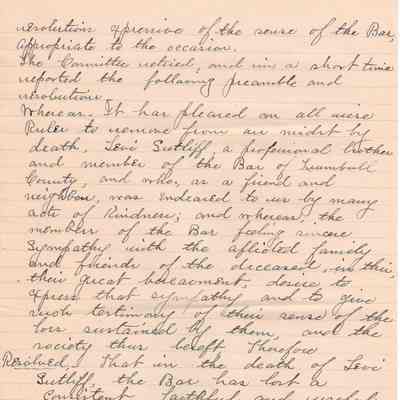 resolution expressive of the sense of the Bar,
appropriate to the occasion.
The Committee retired, and in a short time
reported the following preamble and
resolution
Whereas. It has pleased an all wise
Ruler to remove from our midst by
death, Levi Sutliff, a professional brother
and member of the Bar of Trumbull
County, and who, as a friend and
neighbor, was endeared to us by many
acts of Kindness; and whereas, the
members of the Bar feeling sincere
sympathy with the aflicted family
and friends of the deceased, in this,
their great bereavement, desire to
express that sympathy and to give
such testimony of their sense of the
loss sustained by them, and the
society thus bereft Therefore
Resolved, That in the death of Levi
Sutliff, the Bar has lost a
Consistent, faithful and